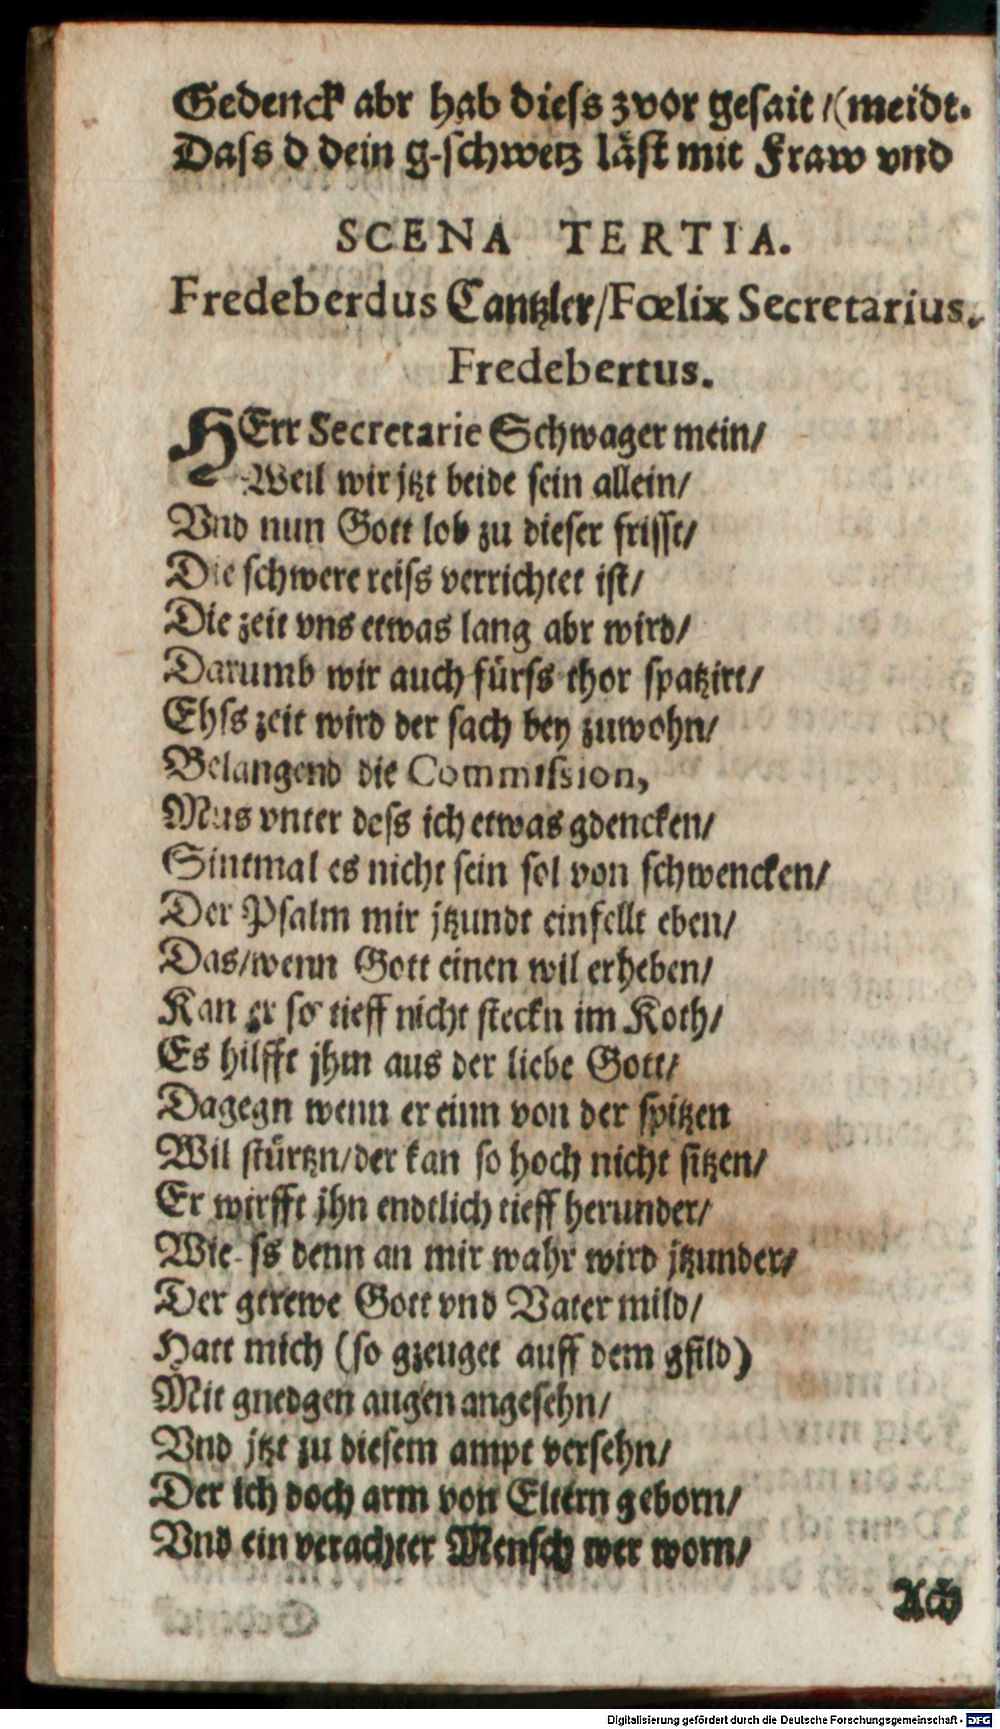 Gedenck abr hab diess zvor gesait /(meidt.
Dass d dein g-schwetz läst mit Fraw vnd
SCENA TERTIA.
Fredeberdus Cantzler/Fœlix Secretarius.
Fredebertus.
HErr Secretarie Schwager mein/
Weil wir jtzt beide sein allein/
Vnd nun Gott lob zu dieser frisst/
Die schwere reiss verrichtet ist/
Die zeit vns etwas lang abr wird/
Darumb wir auch fürss thor spatzirt/
Ehss zeit wird der sach bey zuwohn/
Belangend die Commission,
Mus vnter dess ich etwas gdencken/
Sintmal es nicht sein sol von schwencken/
Der Psalm mir jtzundt einfellt eben/
Das/wenn Gott einen wil erheben/
Kan er so tieff nicht steckn im Koth/
Es hilfft jhm aus der liebe Gott/
Dagegn wenn er einn von der spitzen
Wil stürtzn/der kan so hoch nicht sitzen/
Er wirfft jhn endtlich tieff herunder/
Wie-ss denn an mir wahr wird jtzunder/
Der getrewe Gott vnd Vater mild/
Hatt mich (so gzeuget auff dem gfild)
Mit gnedgen augen angesehn/
Vnd jtzt zu diesem ampt versehn/
Der ich doch arm von Eltern geborn/
Vnd ein verachter Mensch wer worn/
Ach
Digitalisierung gefördert durch die Deutsche Forschungsgemeinschaft - DFG